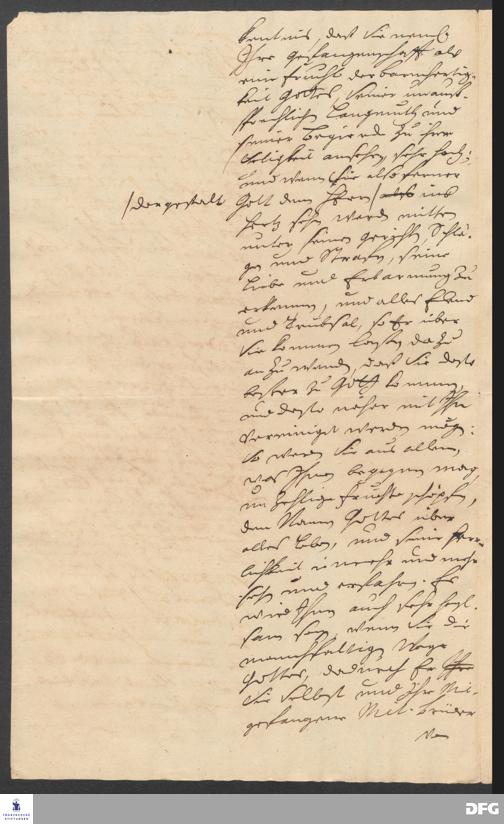 kentnis, daß Sie nemlich
Ihre gefangenschafft als
eine frucht der barmhertzig-
keit Gottes, seiner unauß-
sprechlichen Langmuth und
seiner begierde zu ihrer
Seligkeit ansehen, sehr hoch;
und wenn Sie also ferner
/dergestalt
Gott dem Herrn / als ins
Hertz sehen werden mitten
unter seinen gerichten, Schlä-
gen und Strafen, seine
Liebe und Erbarmung zu
erkennen, und alles Elend
und Trübsal, so Er über
Sie kommen lassen, dazu
anzuwenden, daß Sie desto
besser zu Gott kommen,
und desto näher mit Ihm
vereiniget werden mögen:
So werden Sie aus allem,
was Ihnen begegnen mag,
unzehlige früchte schöpfen,
den Namen Gottes über
alles loben, und seine Herr-
lichkeit immer mehr und mehr
sehen und erfahren. Es
wird Ihnen auch sehr heyl-
sam seyn, wenn Sie die
mannichfaltigen Wege
Gottes, dadurch Er
Sie selbst und Ihre Mit-
gefangene Mit-brüder
FRANCKESCHE STIFTUNGEN
DFG